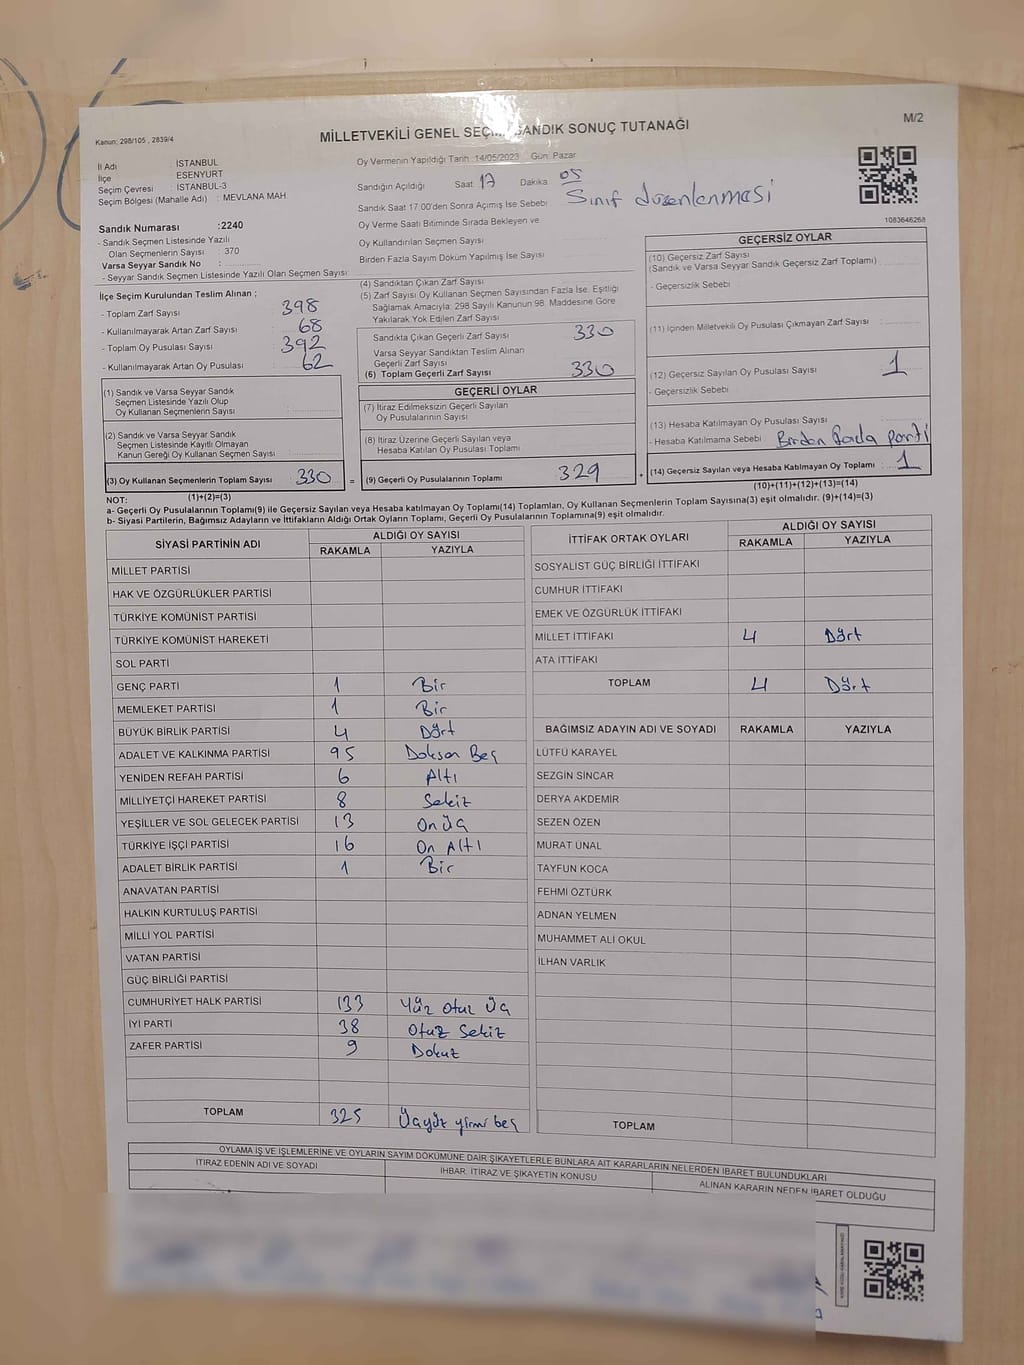 Kanun: 298/105 , 2839/4
MİLLETVEKİLİ GENEL SEÇİMİ SANDIK SONUÇ TUTANAĞI
M/2
İl Adı : İSTANBUL
İlçe : ESENYURT
Seçim Çevresi : İSTANBUL-3
Seçim Bölgesi (Mahalle Adı) : MEVLANA MAH.
Oy Vermenin Yapıldığı Tarih :14/05/2023 Gün: Pazar
Sandığın Açıldığı Saat 17 Dakika 05
Sandık Saat 17:00'den Sonra Açımış İse Sebebi Sınıf düzenlenmesi
1083646268
Sandık Numarası :2240
- Sandık Seçmen Listesinde Yazılı
Olan Seçmenlerin Sayısı : 370
Varsa Seyyar Sandık No :
- Seyyar Sandık Seçmen Listesinde Yazılı Olan Seçmen Sayısı:
Oy Verme Saati Bitiminde Sırada Bekleyen ve
Oy Kullandırılan Seçmen Sayısı :
Birden Fazla Sayım Döküm Yapılmış İse Sayısı :
İlçe Seçim Kurulundan Teslim Alınan ;
- Toplam Zarf Sayısı : 398
- Kullanılmayarak Artan Zarf Sayısı : 68
- Toplam Oy Pusulası Sayısı : 392
- Kullanılmayarak Artan Oy Pusulası : 62
(4) Sandıktan Çıkan Zarf Sayısı :
(5) Zarf Sayısı Oy Kullanan Seçmen Sayısından Fazla İse, Eşitliği
Sağlamak Amacıyla; 298 Sayılı Kanunun 98. Maddesine Göre
Yakılarak Yok Edilen Zarf Sayısı :
Sandıkta Çıkan Geçerli Zarf Sayısı : 330
Varsa Seyyar Sandıktan Teslim Alınan
Geçerli Zarf Sayısı :
(6) Toplam Geçerli Zarf Sayısı : 330
(1) Sandık ve Varsa Seyyar Sandık
Seçmen Listesinde Yazılı Olup
Oy Kullanan Seçmenlerin Sayısı :
(2) Sandık ve Varsa Seyyar Sandık
Seçmen Listesinde Kayıtlı Olmayan
Kanun Gereği Oy Kullanan Seçmen Sayısı :
(3) Oy Kullanan Seçmenlerin Toplam Sayısı : 330
(1)+(2)=(3)
GEÇERLİ OYLAR
(7) İtiraz Edilmeksizin Geçerli Sayılan
Oy Pusulalarının Sayısı :
(8) İtiraz Üzerine Geçerli Sayılan veya
Hesaba Katılan Oy Pusulası Toplamı :
= (9) Geçerli Oy Pusulalarının Toplamı : 329 +
GEÇERSİZ OYLAR
(10) Geçersiz Zarf Sayısı
(Sandık ve Varsa Seyyar Sandık Geçersiz Zarf Toplamı) :
- Geçersizlik Sebebi :
(11) İçinden Milletvekili Oy Pusulası Çıkmayan Zarf Sayısı :
(12) Geçersiz Sayılan Oy Pusulası Sayısı : 1
- Geçersizlik Sebebi :
(13) Hesaba Katılmayan Oy Pusulası Sayısı :
- Hesaba Katılmama Sebebi : Birden fazla parti
(14) Geçersiz Sayılan veya Hesaba Katılmayan Oy Toplamı : 1
(10)+(11)+(12)+(13)=(14)
NOT:
a- Geçerli Oy Pusulalarının Toplamı(9) ile Geçersiz Sayılan veya Hesaba katılmayan Oy Toplamı(14) Toplamları, Oy Kullanan Seçmenlerin Toplam Sayısına(3) eşit olmalıdır. (9)+(14)=(3)
b- Siyasi Partilerin, Bağımsız Adayların ve İttifakların Aldığı Ortak Oyların Toplamı, Geçerli Oy Pusulalarının Toplamına(9) eşit olmalıdır.
SİYASİ PARTİNİN ADI ALDIĞI OY SAYISI
RAKAMLA YAZIYLA
MİLLET PARTİSİ
HAK VE ÖZGÜRLÜKLER PARTİSİ
TÜRKİYE KOMÜNİST PARTİSİ
TÜRKİYE KOMÜNİST HAREKETİ
SOL PARTİ
GENÇ PARTİ 1 Bir
MEMLEKET PARTİSİ 1 Bir
BÜYÜK BİRLİK PARTİSİ 4 Dört
ADALET VE KALKINMA PARTİSİ 95 Doksan Beş
YENİDEN REFAH PARTİSİ 6 Altı
MİLLİYETÇİ HAREKET PARTİSİ 8 Sekiz
YEŞİLLER VE SOL GELECEK PARTİSİ 13 On üç
TÜRKİYE İŞÇİ PARTİSİ 16 On Altı
ADALET BİRLİK PARTİSİ 1 Bir
ANAVATAN PARTİSİ
HALKIN KURTULUŞ PARTİSİ
MİLLİ YOL PARTİSİ
VATAN PARTİSİ
GÜÇ BİRLİĞİ PARTİSİ
CUMHURİYET HALK PARTİSİ 133 Yüz otuz üç
İYİ PARTİ 38 Otuz Sekiz
ZAFER PARTİSİ 9 Dokuz
TOPLAM 325 Üçyüz yirmi beş
İTTİFAK ORTAK OYLARI ALDIĞI OY SAYISI
RAKAMLA YAZIYLA
SOSYALİST GÜÇ BİRLİĞİ İTTİFAKI
CUMHUR İTTİFAKI
EMEK VE ÖZGÜRLÜK İTTİFAKI
MİLLET İTTİFAKI 4 Dört
ATA İTTİFAKI
TOPLAM 4 Dört
BAĞIMSIZ ADAYIN ADI VE SOYADI RAKAMLA YAZIYLA
LÜTFÜ KARAYEL
SEZGİN SİNCAR
DERYA AKDEMİR
SEZEN ÖZEN
MURAT ÜNAL
TAYFUN KOCA
FEHMİ ÖZTÜRK
ADNAN YELMEN
MUHAMMET ALİ OKUL
İLHAN VARLIK
TOPLAM
OYLAMA İŞ VE İŞLEMLERİNE VE OYLARIN SAYIM DÖKÜMÜNE DAİR ŞİKAYETLERLE BUNLARA AİT KARARLARIN NELERDEN İBARET BULUNDUKLARI
İTİRAZ EDENİN ADI VE SOYADI İHBAR, İTİRAZ VE ŞİKAYETİN KONUSU ALINAN KARARIN NEDEN İBARET OLDUĞU